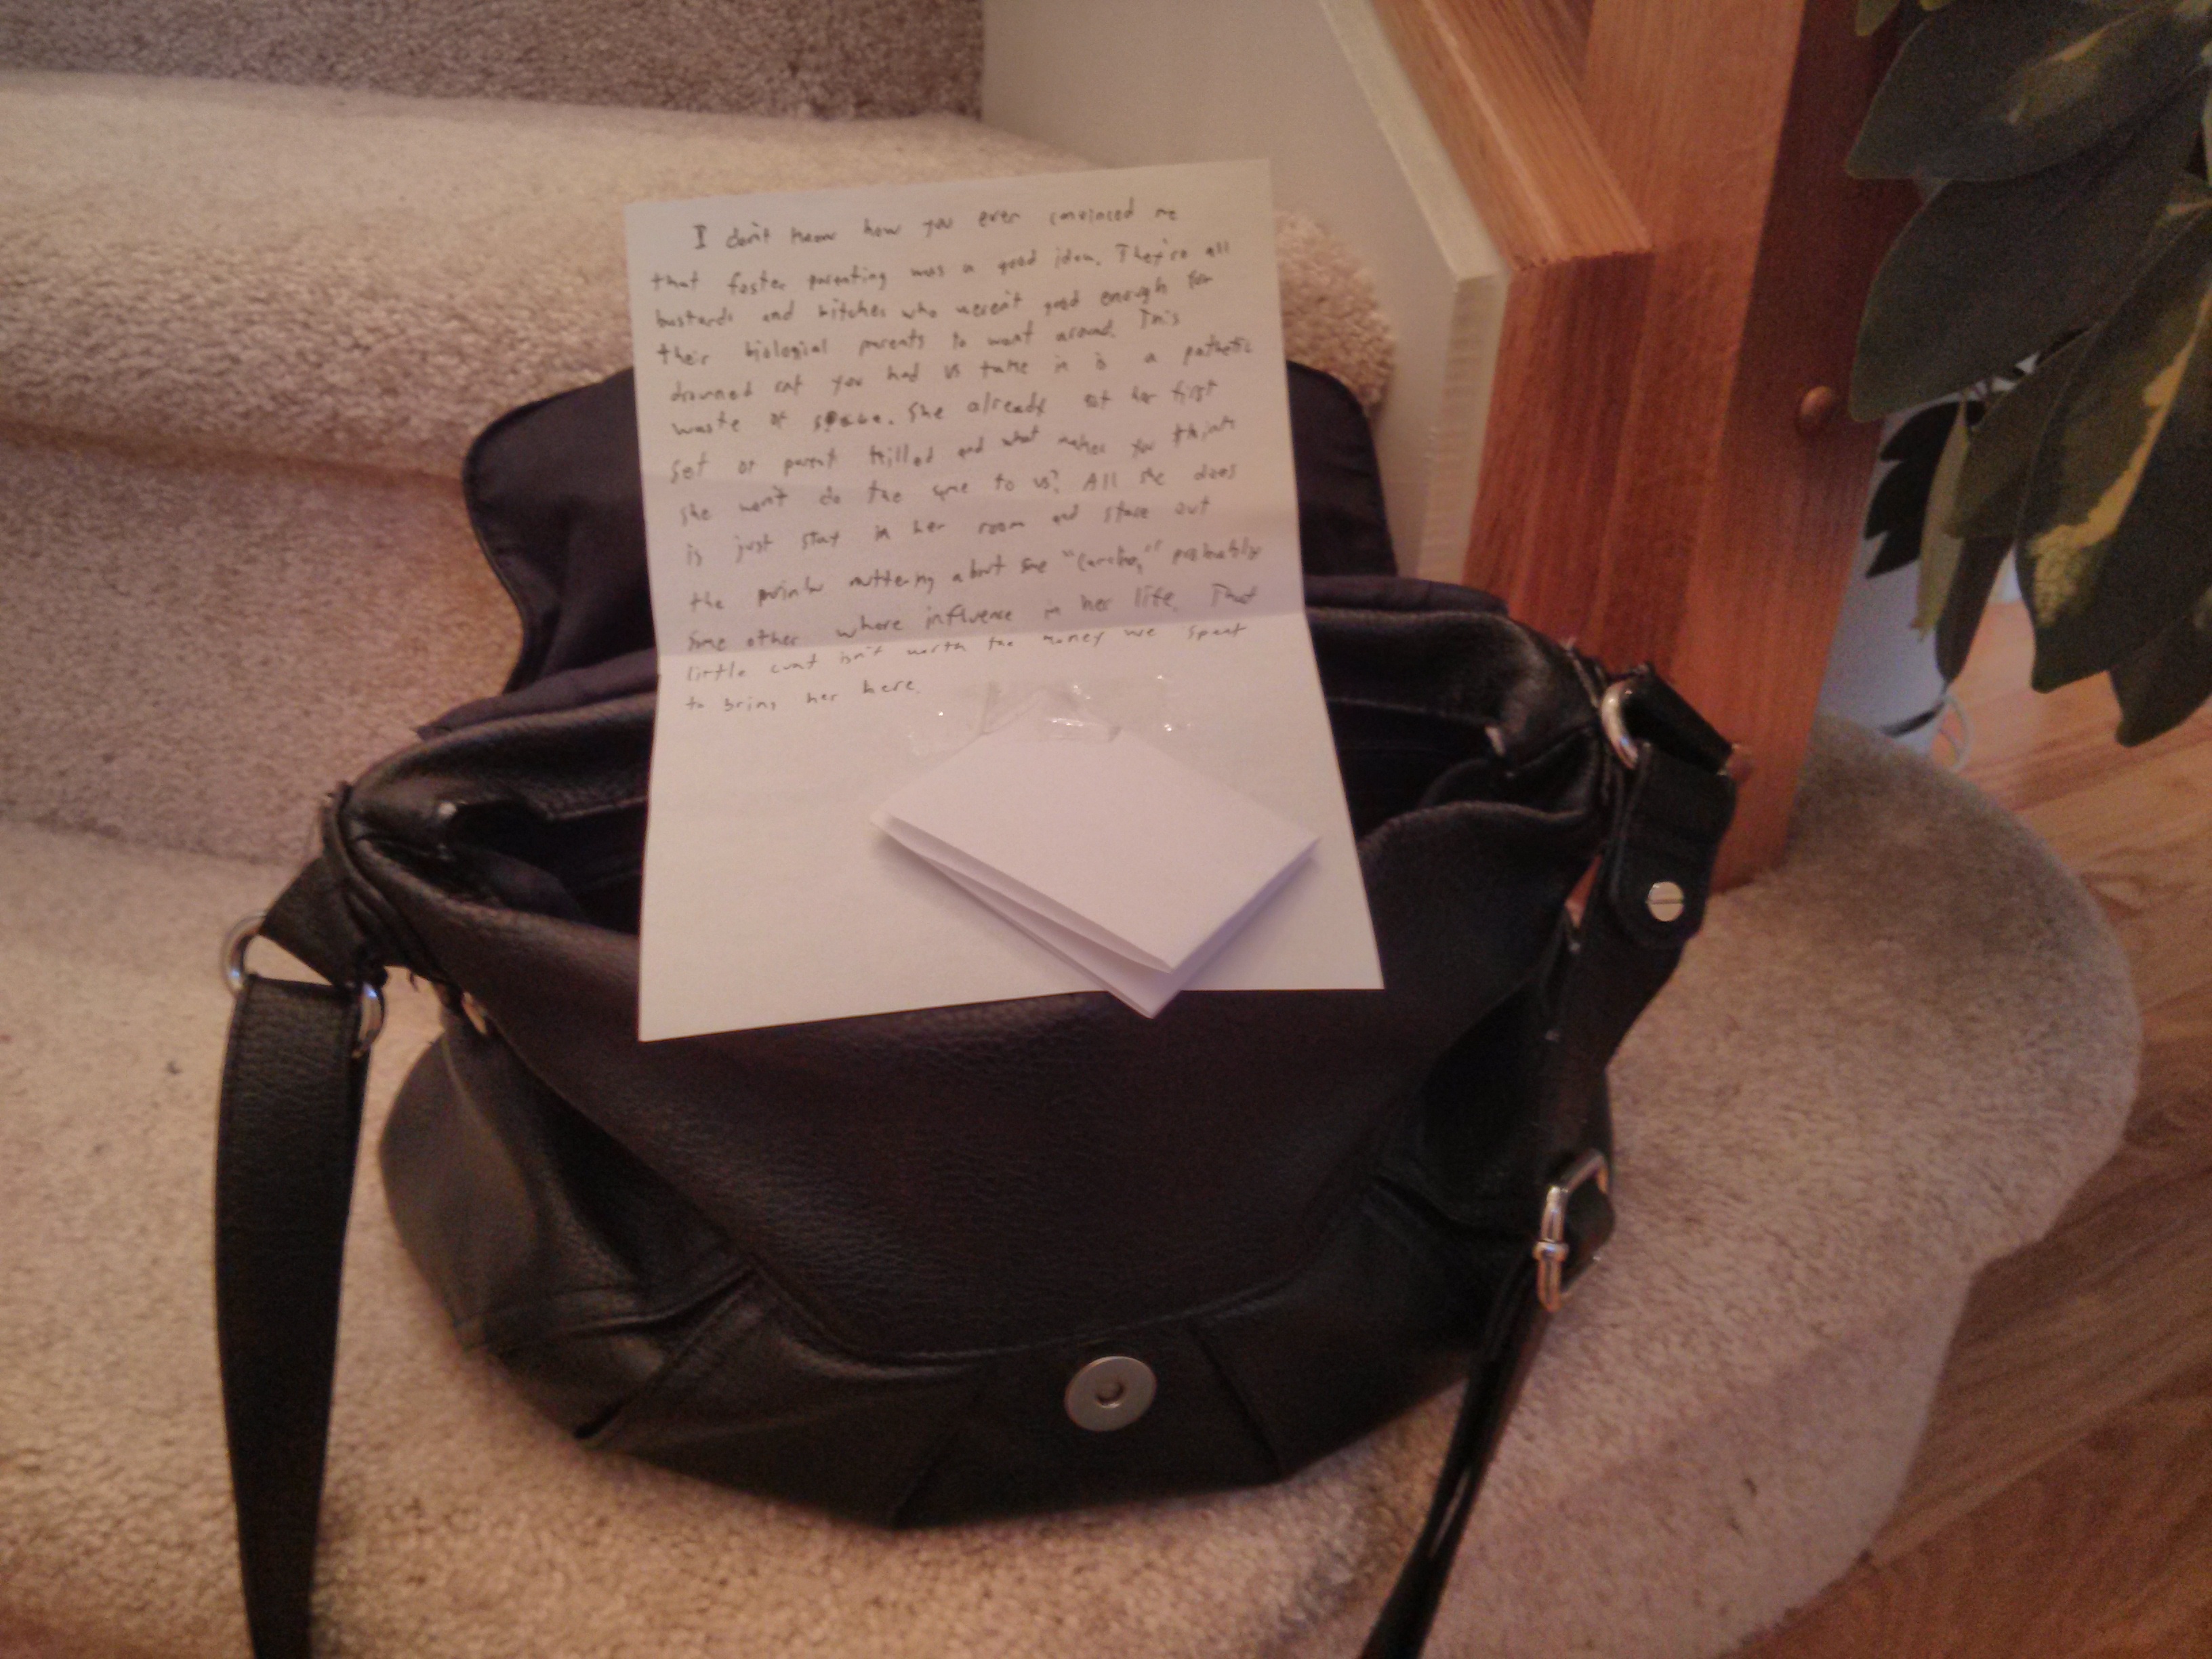 I don't know how you ever convinced me
that foster parenting was a good idea. They're all
bastards and bitches who weren't good enough for
their biological parents to want around. This
drowned rat you had us take in is a pathetic
waste of space. She already got her first
set of parent killed and what makes you think
she won't do the same to us? All she does
is just stay in her room and stare out
the muttering about some probably
some other whore influence in her life. That
little cunt isn't worth the money we spent
to bring her here.